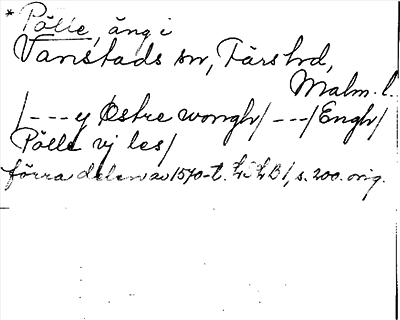 * Pölle, äng i
Vanstads sn, Färs hd,
Malm. l.
/---y Östre wongh/ ---/Engh/
Pölle vj les/
förra delen av 1570-t. B1, s. 200. orig.